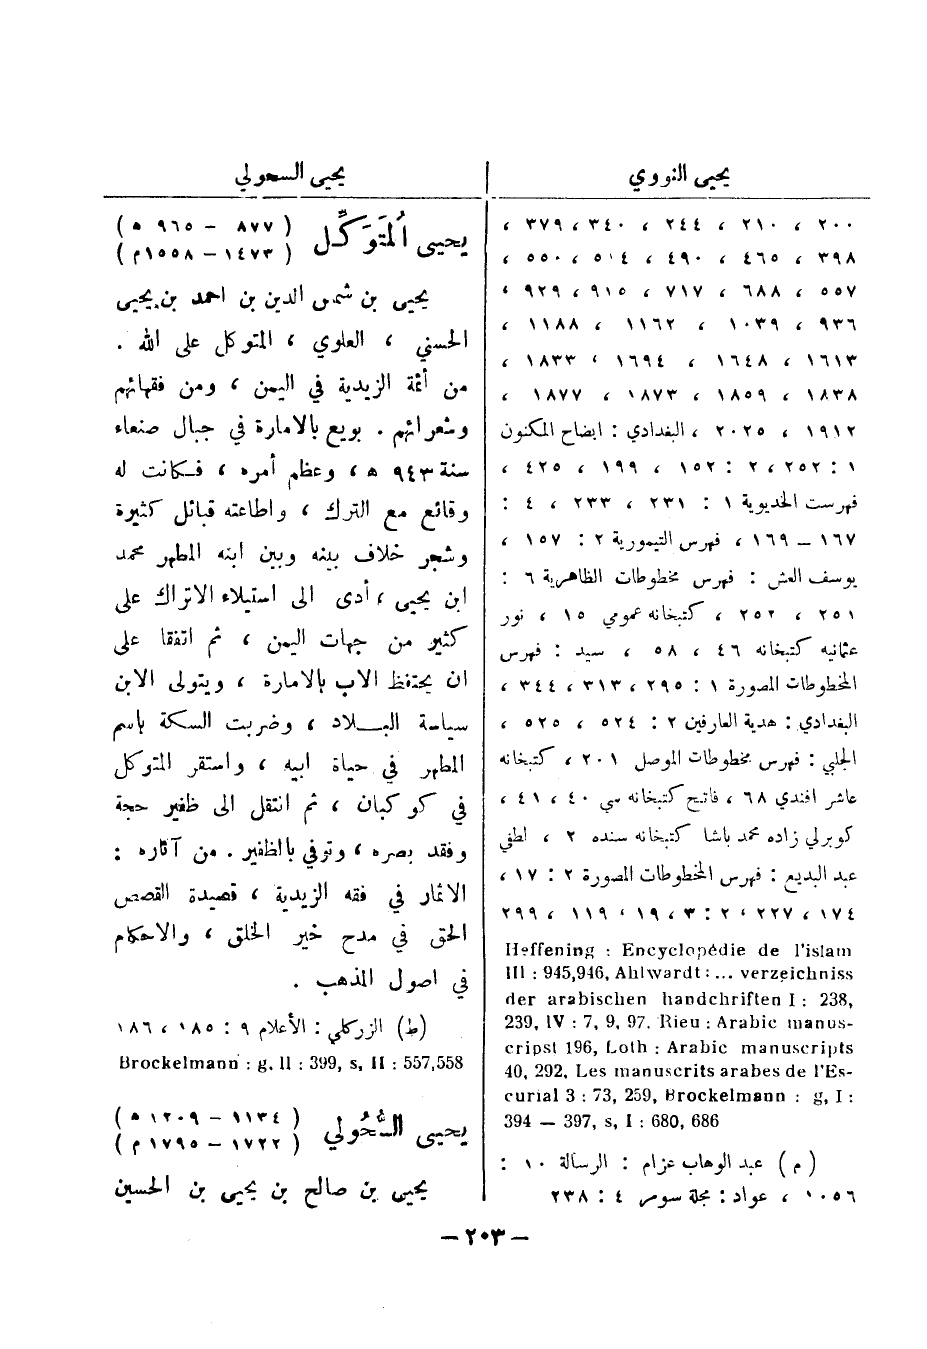 يحيى النووي
يحيى السحولي
٢٠٠ ، ٢١٠ ، ٢٤٤ ، ٣٤٠ ، ٣٧٩ ،
٣٩٨ ، ٤٦٥ ، ٤٩٠ ، ٥١٤ ، ٥٥٠ ،
٥٥٧ ، ٦٨٨ ، ٧١٧ ، ٩١٥ ، ٩٢٩ ،
٩٣٦ ، ١٠٣٩ ، ١١٦٢ ، ١١٨٨ ،
١٦١٣ ، ١٦٤٨ ، ١٦٩٤ ، ١٨٣٣ ،
١٨٣٨ ، ١٨٥٩ ، ١٨٧٣ ، ١٨٧٧ ،
١٩١٢ ، ٢٠٢٥ ، البغدادي : ايضاح المكنون
١ : ٢٥٢ ، ٢ : ١٥٢ ، ١٩٩ ، ٤٢٥ ،
فهرست الخديوية ١ : ٢٣١ ، ٢٣٣ ، ٤ :
١٦٧ ــ ١٦٩ ، فهرس التيمورية ٢ : ١٥٧ ،
يوسف العش : فهرس مخطوطات الظاهرية ٦ :
٢٥١ ، ٢٥٢ ، كتبخانه عمومي ١٥ ، نور
عثمانيه كتبخانه ٤٦ ، ٥٨ ، سيد : فهرس
المخطوطات المصورة ١ : ٢٩٥ ، ٣١٣ ، ٣٤٤ ،
البغدادي : هدية العارفين ٢ : ٥٢٤ ، ٥٢٥ ،
الجلبي : فهرس مخطوطات الموصل ٢٠١ ، كتبخانه
عاشر افندي ٦٨ ، فاتح كتبخانه سي ٤٠ ، ٤١ ،
كوبرلي زاده محمد باشا كتبخانه سنده ٢ ، لطفي
عبد البديع : فهرس المخطوطات المصورة ٢ : ١٧ ،
١٧٤ ، ٢٢٧ ، ٢ : ٣ ، ١٩ ، ١١٩ ، ٢٩٩
Heffening : Encyclopédie de l'islam
III : 945,946, Ahlwardt : ... verzeichniss
der arabischen handchriften I : 238,
239, IV : 7, 9, 97. Rieu : Arabic manus-
cripst 196, Loth : Arabic manuscripts
40, 292, Les manuscrits arabes de l'Es-
curial 3 : 73, 259, Brockelmann : g, I :
394 — 397, s, I : 680, 686
( م ) عبد الوهاب عزام : الرسالة ١٠ :
١٠٥٦ ، عواد : مجلة سومر ٤ : ٢٣٨
يحيى المُتَوَكِّل ( ٨٧٧ – ٩٦٥ ه )
( ١٤٧٣ – ١٥٥٨ م )
يحيى بن شمس الدين بن احمد بن يحيى
الحسني ، العلوي ، المتوكل على الله .
من أئمة الزيدية في اليمن ، ومن فقهائهم
وشعرائهم . بويع بالامارة في جبال صنعاء
سنة ٩٤٣ ه ، وعظم أمره ، فـكانت له
وقائع مع الترك ، واطاعته قبائل كثيرة
وشجر خلاف بينه وبين ابنه المطهر محمد
ابن يحيى ، أدى الى استيلاء الاتراك على
كثير من جهات اليمن ، ثم اتفقا على
ان يحتفظ الاب بالامارة ، ويتولى الابن
سياسة البــلاد ، وضربت السكة باسم
المطهر في حياة ابيه ، واستقر المتوكل
في كوكبان ، ثم انتقل الى ظفير حجة
وفقد بصره ، وتوفي بالظفير . من آثاره :
الاثمار في فقه الزيدية ، قصيدة القصص
الحق في مدح خير الخلق ، والاحكام
في اصول المذهب .
(ط) الزركلي : الأعلام ٩ : ١٨٥ ، ١٨٦
Brockelmann : g, II : 399, s, II : 557,558
يحيى السُّحُولي ( ١١٣٤ – ١٢٠٩ ه )
( ١٧٢٢ – ١٧٩٥ م )
يحيى بن صالح بن يحيى بن الحسين
– ٢٠٣ –